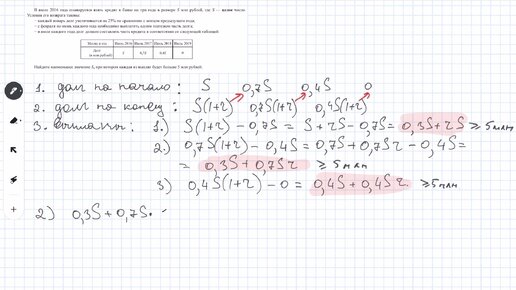 В июле 2016 года планируется взять кредит в банке на три года в размере S млн рублей, где S — целое число.
Условия его возврата таковы:
– каждый январь долг увеличивается на 25% по сравнению с концом предыдущего года;
– с февраля по июнь каждого года необходимо выплатить одним платежом часть долга;
– в июле каждого года долг должен составлять часть кредита в соответствии со следующей таблицей
Месяц и год Июль 2016 Июль 2017 Июль 2018 Июль 2019
Долг (в млн рублей) S 0,7S 0,4S 0
Найдите наименьшее значение S, при котором каждая из выплат будет больше 5 млн рублей.
1. долг на начало : S 0,7S 0,4S 0
2. долг на конец : S(1+r) 0,7S(1+r) 0,4S(1+r)
3. выплаты : 1.) S(1+r) – 0,7S = S + rS – 0,7S = 0,3S + rS ≥ 5 млн
2.) 0,7S(1+r) – 0,4S = 0,7S + 0,7Sr – 0,4S =
= 0,3S + 0,7Sr ≥ 5 млн
3) 0,4S(1+r) – 0 = 0,4S + 0,4Sr ≥ 5 млн
2) 0,3S + 0,7S·